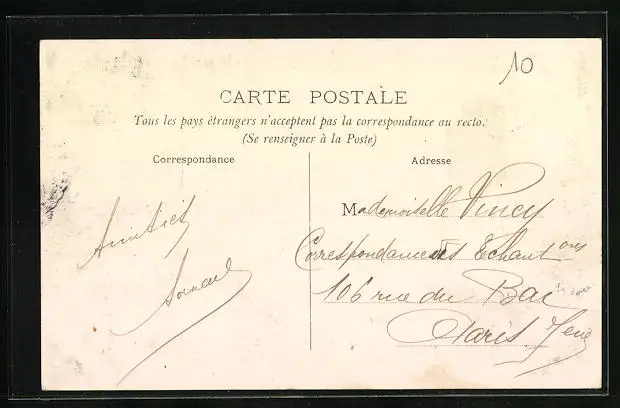 10
CARTE POSTALE
Tous les pays étrangers n'acceptent pas la correspondance au recto.
(Se renseigner à la Poste)
Correspondance
Adresse
Amitiés
Mademoiselle Vincy
Correspondance des Echantons
106 rue du Bac
Paris 7ème